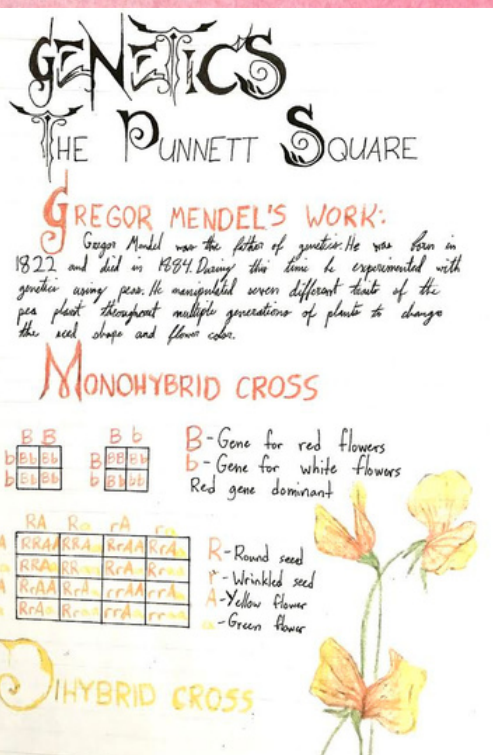 GENETICS
THE PUNNETT SQUARE
GREGOR MENDEL'S WORK:
Gregor Mendel was the father of genetics. He was born in
1822 and died in 1884. During this time he experimented with
genetics using peas. He manipulated seven different traits of the
pea plant throughout multiple generations of plants to change
the seed shape and flower color.
MONOHYBRID CROSS
B B
b Bb Bb
b Bb Bb
B b
B BB Bb
b Bb bb
B-Gene for red flowers
b-Gene for white flowers
Red gene dominant
RA Ra rA ra
A RRAA RRAa RrAA RrAa
RRAa RRaa RrAa Rraa
A RrAA RrAa rrAA rrAa
RrAa Rraa rrAa rraa
R-Round seed
r-Wrinkled seed
A-Yellow flower
a-Green flower
DIHYBRID CROSS